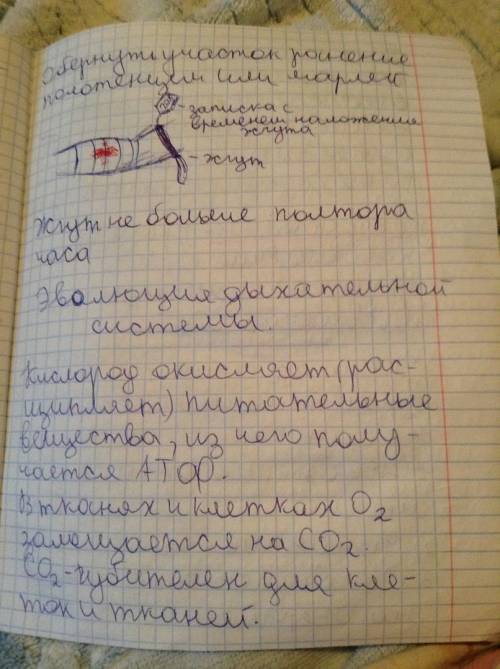 Обернути участок ранение
полотенцем или марлей
- записка с
временем наложения
жгута
- жгут
Жгут не больше полтора
часа
Эвалюция дыхательной
системы.
Кислород окисляет (рас-
щипляет) питательные
вещества, из чего полу-
чается АТФ.
В тканях и клетках O₂
замещается на CO₂.
CO₂ - губителен для кле-
ток и тканей.